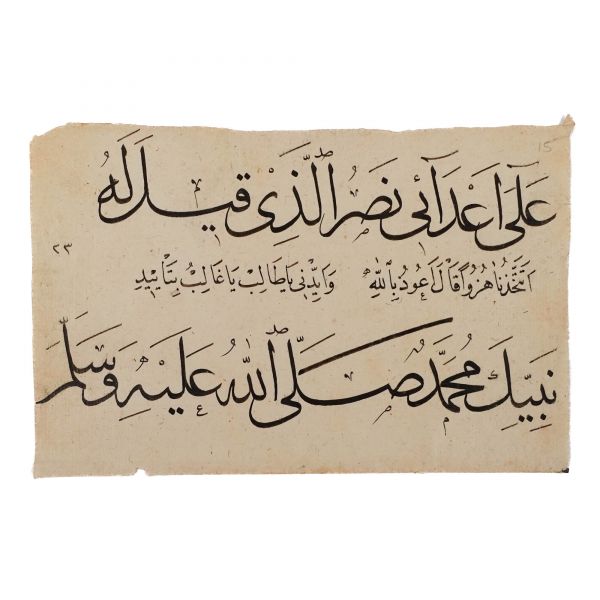 15
عَلَىٰ اَعْدَآئِى نَصْرَ الَّذِى قِيلَ لَهُ
٢٣
اَتَتَّخِذُنَا هُزُوًا قَالَ اَعُوذُ بِاللّٰهِ وَاَيِّدْنِى يَا طَالِبُ يَا غَالِبُ بِتَأْيِيدِ
نَبِيِّكَ مُحَمَّدٍ صَلَّى اللّٰهُ عَلَيْهِ وَسَلَّمَ